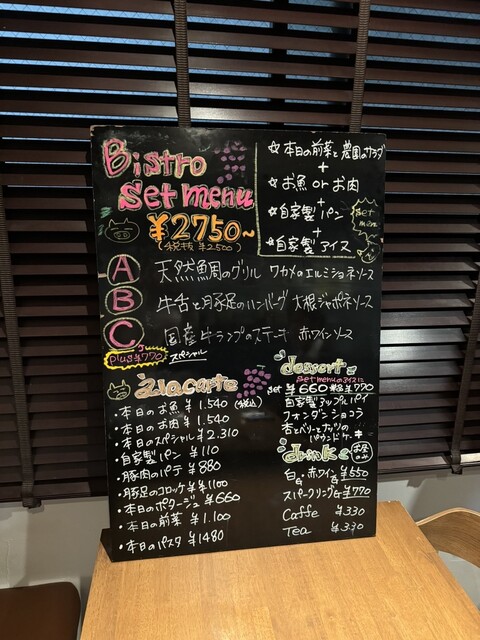 Bistro
Set menu
¥2750~
(税抜 ¥2500)
☆本日の前菜と農園のサラダ
+
☆お魚 or お肉
+
☆自家製パン
+
☆自家製アイス
set menu
A 天然鯛のグリル ワカメのエルミョネソース
B 牛舌と豚足のハンバーグ 大根ジャポネソース
C 国産牛ランプのステーキ 赤ワインソース
plus ¥770
スペシャル
a la carte
・本日のお魚 ¥1.540 (税込)
・本日のお肉 ¥1.540
・本日のスペシャル ¥2.310
・自家製パン ¥110
・豚肉のパテ ¥880
・豚足のコロッケ ¥1100
・本日のポタージュ ¥660
・本日の前菜 ¥1.100
・本日のパスタ ¥1480
dessert
set menuのアイスに
set ¥660 単品 ¥770
自家製アップルパイ
フォンダンショコラ
杏とベリーとナッツの
パウンドケーキ
drink
白&赤ワイン ¥550
スパークリング ¥770
Caffe ¥330
Tea ¥330